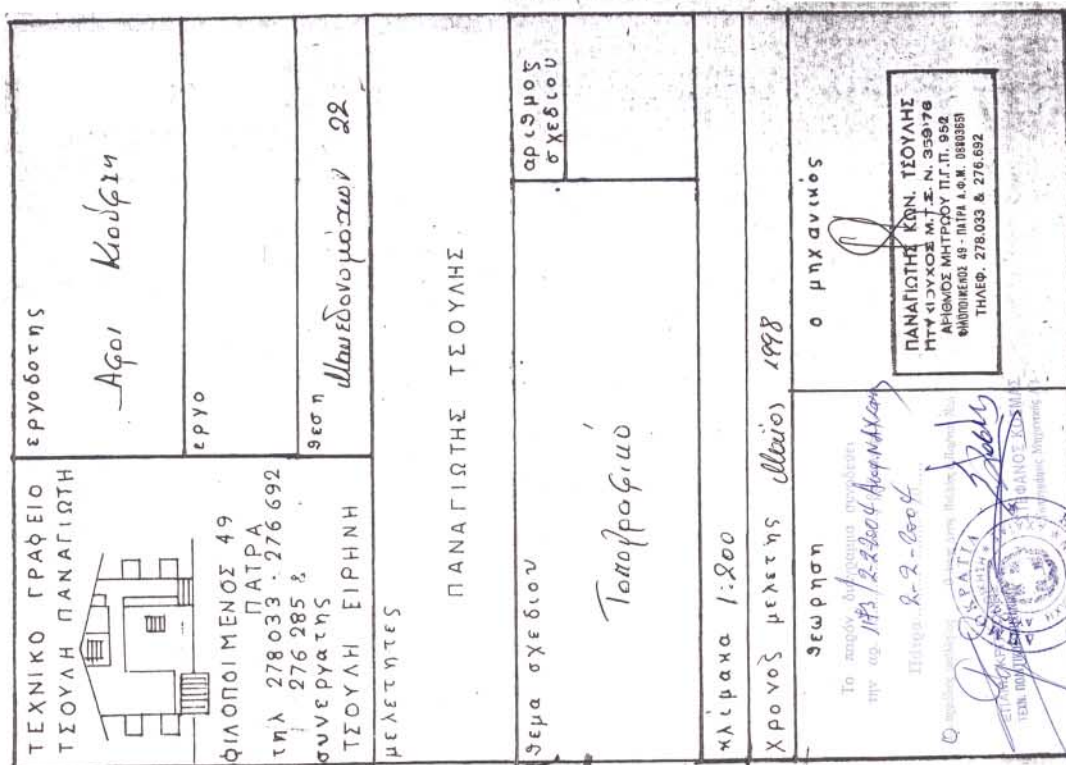 ΤΕΧΝΙΚΟ ΓΡΑΦΕΙΟ
ΤΣΟΥΛΗ ΠΑΝΑΓΙΩΤΗ
ΦΙΛΟΠΟΙΜΕΝΟΣ 49
ΠΑΤΡΑ
τηλ 278033 · 276 692
276 285 &
συνεργατης
ΤΣΟΥΛΗ ΕΙΡΗΝΗ
εργοδοτης
Αφοι Κιούφη
εργο
θεση Μακεδονομάχων 22
μελετητες
ΠΑΝΑΓΙΩΤΗΣ ΤΣΟΥΛΗΣ
θεμα σχεδιου
Τοπογραφικό
αριθμος
σχεδιου
κλίμακα 1:200
χρονος μελετης Μαϊος 1998
θεωρηση
Το παρόν διάγραμμα συνοδεύει
την αρ.
Πάτρα 2-2-2004
ο μηχανικός
ΠΑΝΑΓΙΩΤΗΣ ΚΩΝ. ΤΣΟΥΛΗΣ
ΠΤΥΧΙΟΥΧΟΣ Μ.Τ.Σ. Ν. 359/76
ΑΡΙΘΜΟΣ ΜΗΤΡΩΟΥ Π.Γ.Π. 952
ΦΙΛΟΠΟΙΜΕΝΟΣ 49 - ΠΑΤΡΑ Α.Φ.Μ. 08803651
ΤΗΛΕΦ. 278.033 & 276.692